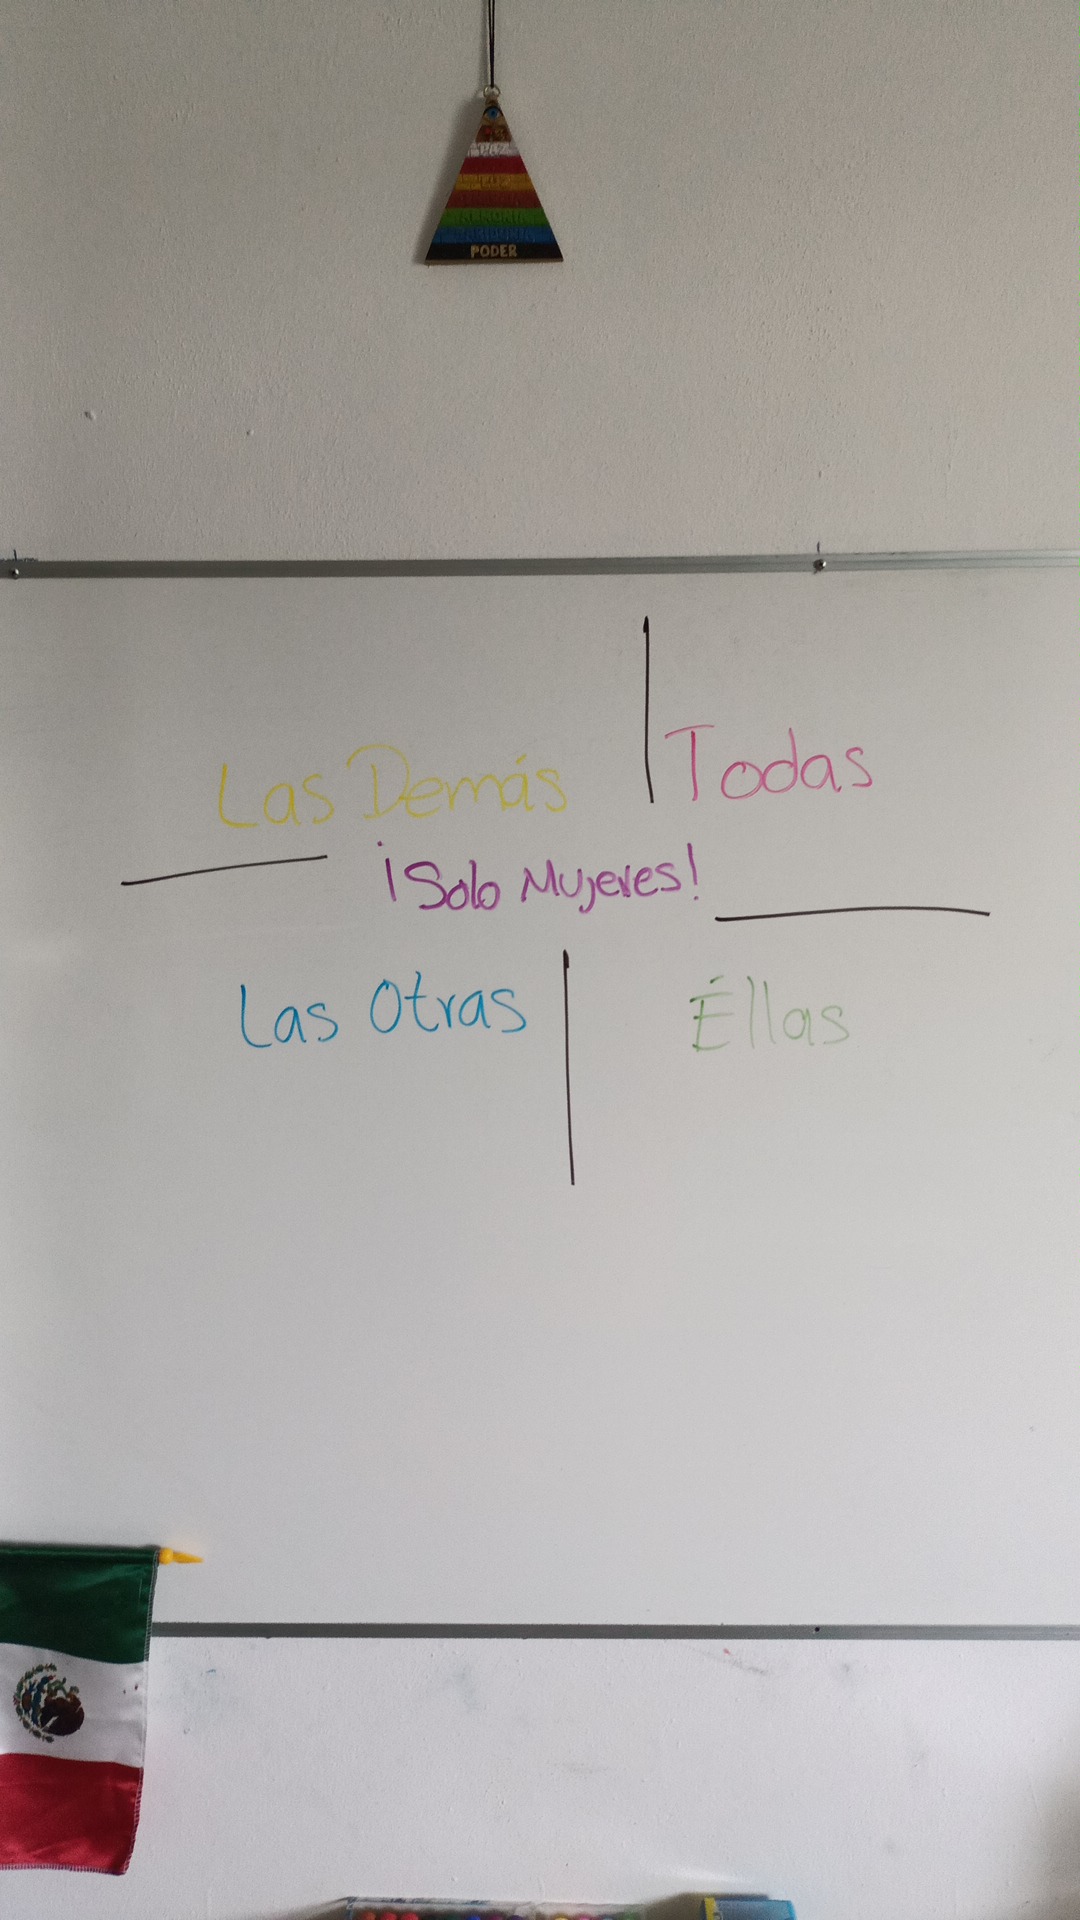 PAZ
PODER
Las Demás
Todas
¡Solo Mujeres!
Las Otras
Éllas